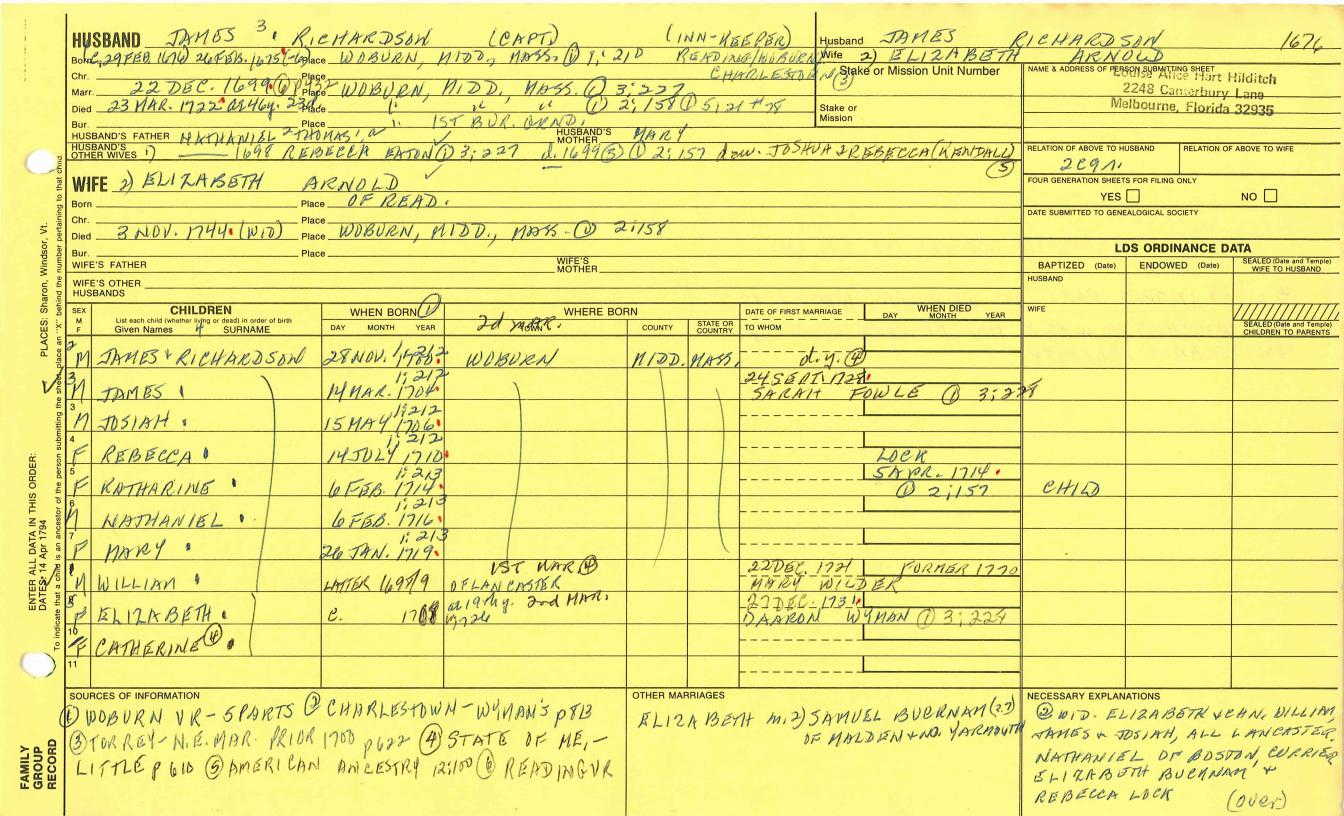 HUSBAND JAMES 3. RICHARDSON (CAPT) (INN-KEEPER)
Born C, 29 FEB 1676 26 FEB. 1675 Place WOBURN, MIDD., MASS. ① 1; 210 READING/WOBURN
Chr. Place CHARLESTOWN
Marr. 22 DEC. 1699 Place WOBURN, MIDD, MASS. ① 3; 227
Died 23 MAR. 1722 Place " " " ① 2; 158
Bur. Place " 1ST BUR. GRND.
HUSBAND'S FATHER NATHANIEL 2 THOMAS 1 HUSBAND'S MOTHER MARY
HUSBAND'S OTHER WIVES 1) 1698 REBECCA EATON ① 3; 227 d. 1699 ③ ① 2; 157 dau. JOSHUA & REBECCA (KENDALL) ⑤
WIFE 2) ELIZABETH ARNOLD
Born Place OF READ.
Chr. Place
Died 3 NOV. 1744 (WID) Place WOBURN, MIDD., MASS. ① 2; 158
Bur. Place
WIFE'S FATHER WIFE'S MOTHER
WIFE'S OTHER HUSBANDS
Husband JAMES RICHARDSON 1676
Wife 2) ELIZABETH ARNOLD
Stake or Mission Unit Number
③
Stake or Mission
NAME & ADDRESS OF PERSON SUBMITTING SHEET
Louise Alice Hart Hilditch
2248 Canterbury Lane
Melbourne, Florida 32935
RELATION OF ABOVE TO HUSBAND RELATION OF ABOVE TO WIFE
FOUR GENERATION SHEETS FOR FILING ONLY
YES NO
DATE SUBMITTED TO GENEALOGICAL SOCIETY
LDS ORDINANCE DATA
BAPTIZED (Date) ENDOWED (Date) SEALED (Date and Temple) WIFE TO HUSBAND
HUSBAND
WIFE
SEALED (Date and Temple) CHILDREN TO PARENTS
SEX M F CHILDREN WHEN BORN ① WHERE BORN DATE OF FIRST MARRIAGE WHEN DIED
List each child (whether living or dead) in order of birth
Given Names 4 SURNAME DAY MONTH YEAR 2d MAR. COUNTY STATE OR COUNTRY TO WHOM DAY MONTH YEAR
2 M JAMES 4 RICHARDSON 28 NOV. 1700 1; 212 WOBURN MIDD. MASS. d.y. ④
3 M JAMES 14 MAR. 1704 1; 212 24 SEPT. 1728 SARAH FOWLE ① 3; 228
3 M JOSIAH 15 MAY 1706 1; 212
4 F REBECCA 14 JULY 1710 1; 212 LOCK
5 F KATHARINE 6 FEB. 1714 1; 213 5 APR. 1714 ① 2; 157 CHILD
6 M NATHANIEL 6 FEB. 1716 1; 213
7 F MARY 26 JAN. 1719 1; 213
M WILLIAM LATTER 1698/9 1ST MAR ④ OF LANCASTER 22 DEC. 1721 MARY WILDER FORMER 1770
F ELIZABETH C. 2nd MAR. 27 DEC. 1731 AARON WYMAN ① 3; 224
10 F CATHERINE ④
11
SOURCES OF INFORMATION
① WOBURN VR - 5 PARTS ② CHARLESTOWN - WYMAN'S p 813
③ TORREY - N.E. MAR. PRIOR 1700 p 622 ④ STATE OF ME, -
LITTLE p 610 ⑤ AMERICAN ANCESTRY 12; 100 ⑥ READING VR
OTHER MARRIAGES
ELIZABETH m. 2) SAMUEL BUCKNAM
OF MALDEN & NO. YARMOUTH
NECESSARY EXPLANATIONS
② WID. ELIZABETH & CHN, WILLIAM,
JAMES & JOSIAH, ALL LANCASTER,
NATHANIEL OF BOSTON, CURRIER
ELIZABETH BUCKNAM &
REBECCA LOCK (over)
PLACES: Sharon, Windsor, Vt.
ENTER ALL DATA IN THIS ORDER:
DATES: 14 Apr 1794
To indicate that a child is an ancestor of the person submitting the sheet, place an "X" behind the number pertaining to that child.
FAMILY GROUP RECORD